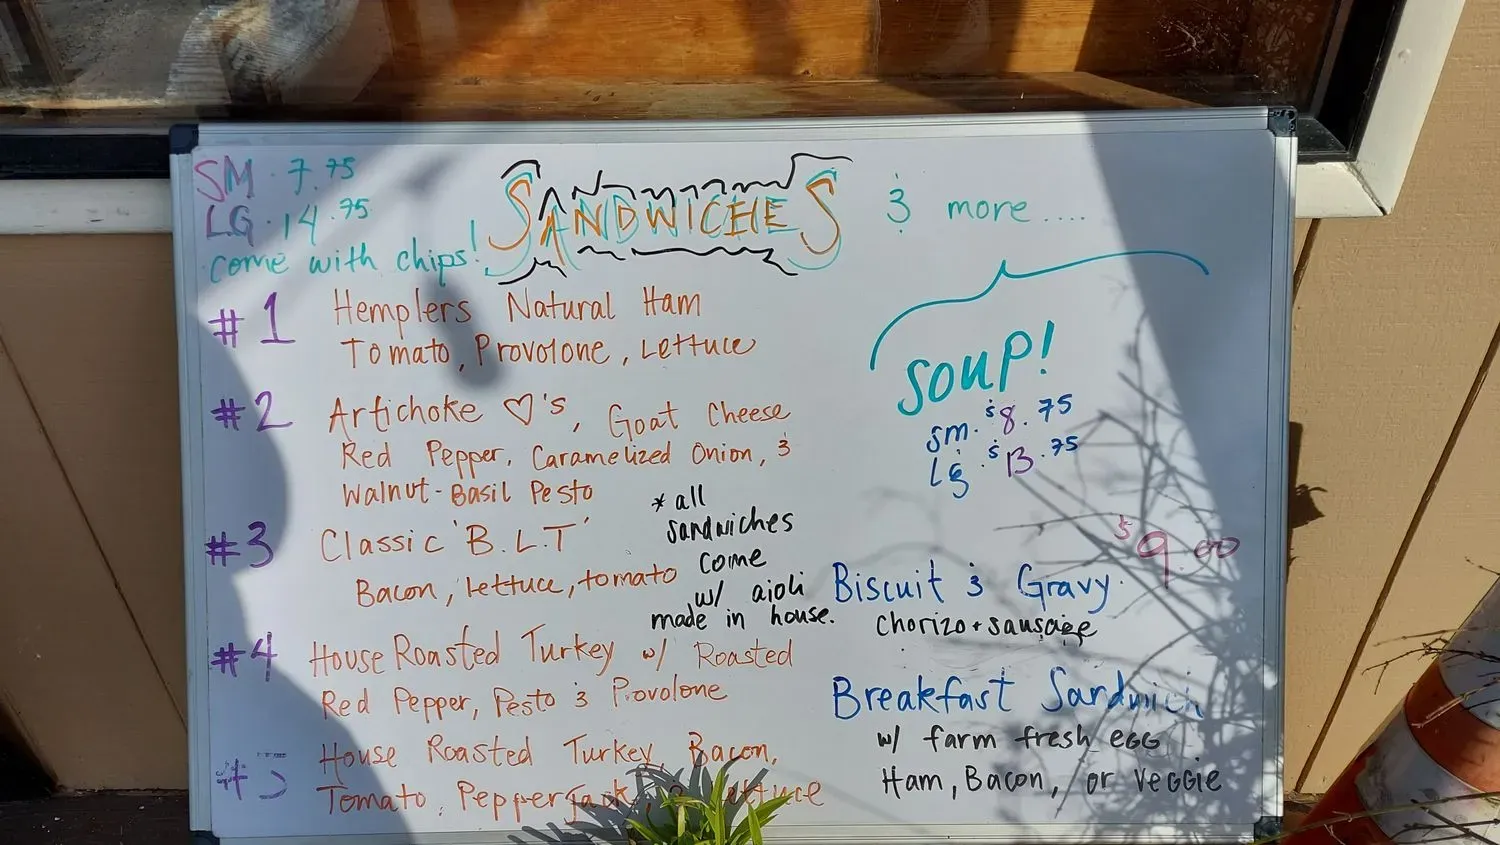 SM. 7.75
LG. 14.75
come with chips!
SANDWICHES & more....
#1 Hemplers Natural Ham
Tomato, Provolone, Lettuce
#2 Artichoke ♡'s, Goat Cheese
Red Pepper, Caramelized Onion, &
Walnut-Basil Pesto
#3 Classic 'B.L.T'
Bacon, Lettuce, tomato
* all
sandwiches
come
w/ aioli
made in house.
#4 House Roasted Turkey w/ Roasted
Red Pepper, Pesto & Provolone
#5 House Roasted Turkey, Bacon,
Tomato, PepperJack, & Lettuce
SOUP!
sm. $8.75
Lg. $13.75
$9.00
Biscuit & Gravy.
chorizo + sausage
Breakfast Sandwich
w/ farm fresh egg
Ham, Bacon, or Veggie